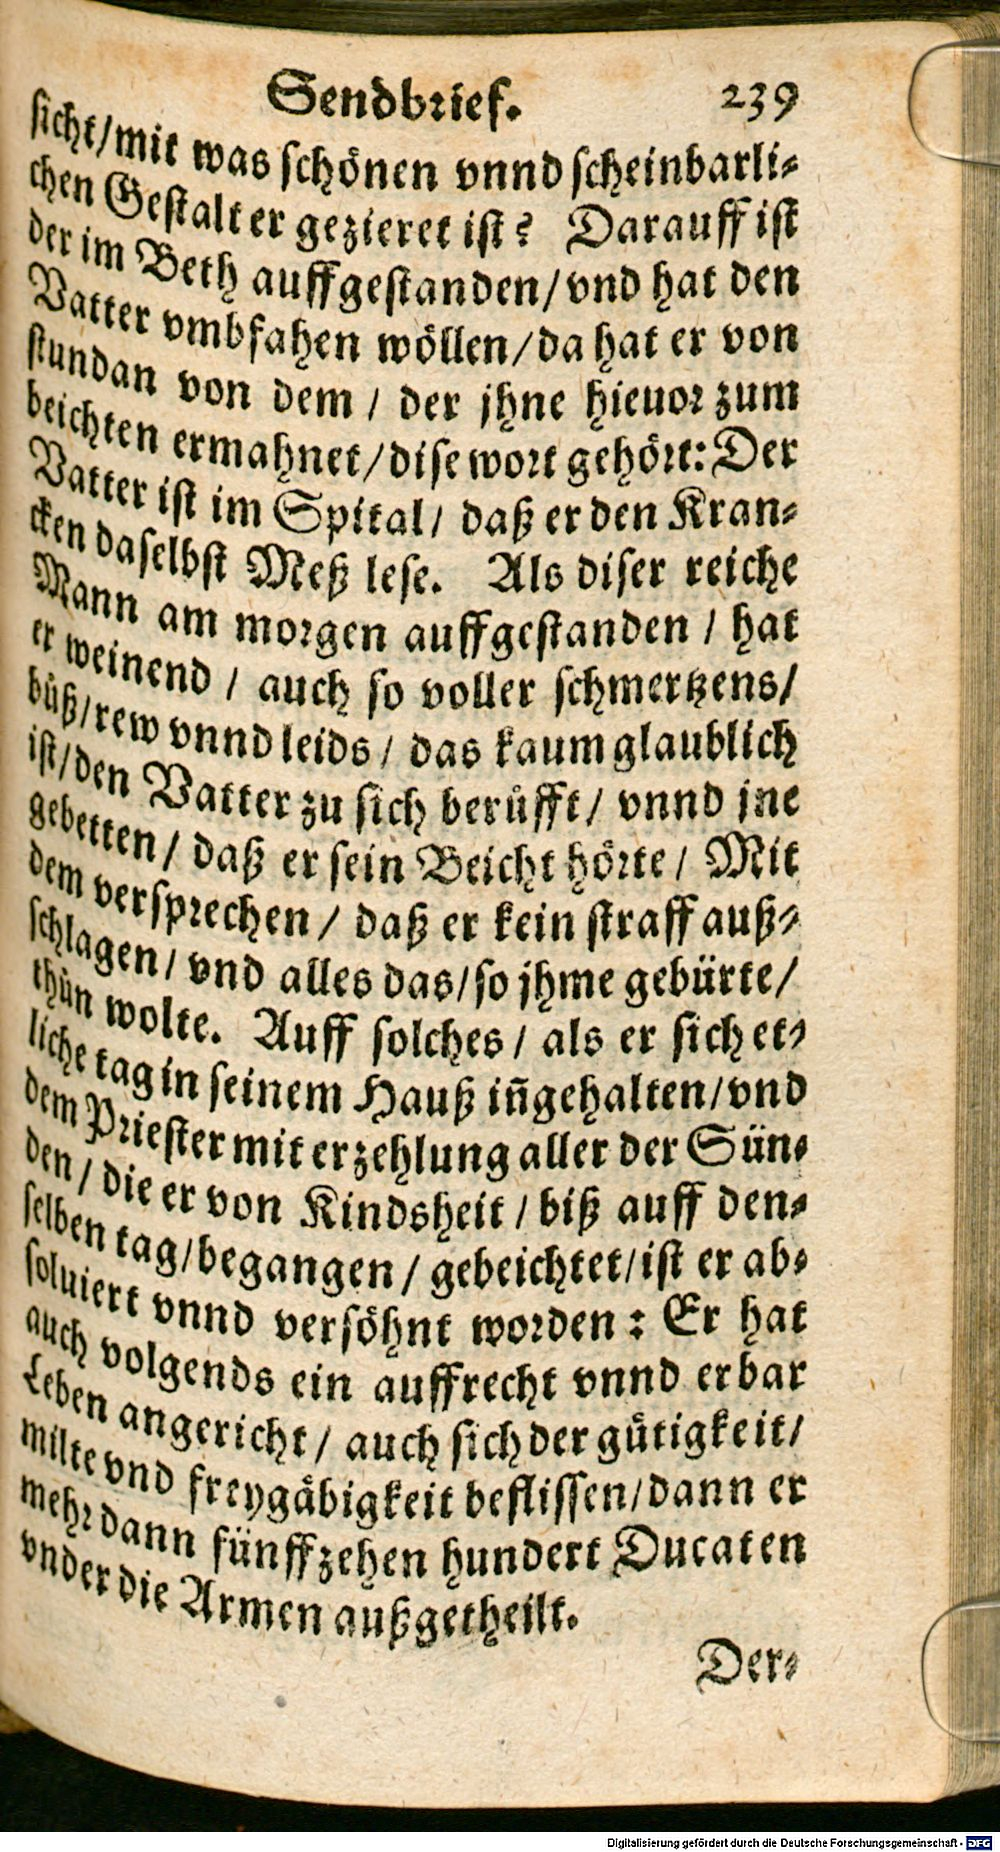 Sendbrief. 239
sicht/mit was schönen vnnd scheinbarli-
chen Gestalt er gezieret ist? Darauff ist
der im Beth auffgestanden/vnd hat den
Vatter vmbfahen wöllen/da hat er von
stundan von dem / der jhne hieuor zum
beichten ermahnet/dise wort gehört: Der
Vatter ist im Spital/ daß er den Kran-
cken daselbst Meß lese. Als diser reiche
Mann am morgen auffgestanden / hat
er weinend / auch so voller schmertzens/
bůß/rew vnnd leids / das kaum glaublich
ist/den Vatter zu sich berůfft/ vnnd jne
gebetten / daß er sein Beicht hörte / Mit
dem versprechen / daß er kein straff auß-
schlagen/ vnd alles das/so jhme gebürte/
thůn wolte. Auff solches / als er sich et-
liche tag in seinem Hauß iñgehalten/vnd
dem Priester mit erzehlung aller der Sün-
den / die er von Kindsheit / biß auff den-
selben tag/begangen / gebeichtet/ist er ab-
soluiert vnnd versöhnt worden : Er hat
auch volgends ein auffrecht vnnd erbar
Leben angericht/ auch sich der gůtigkeit/
milte vnd freygäbigkeit beflissen/dann er
mehr dann fünffzehen hundert Ducaten
vnder die Armen außgetheilt.
Der-
Digitalisierung gefördert durch die Deutsche Forschungsgemeinschaft - DFG